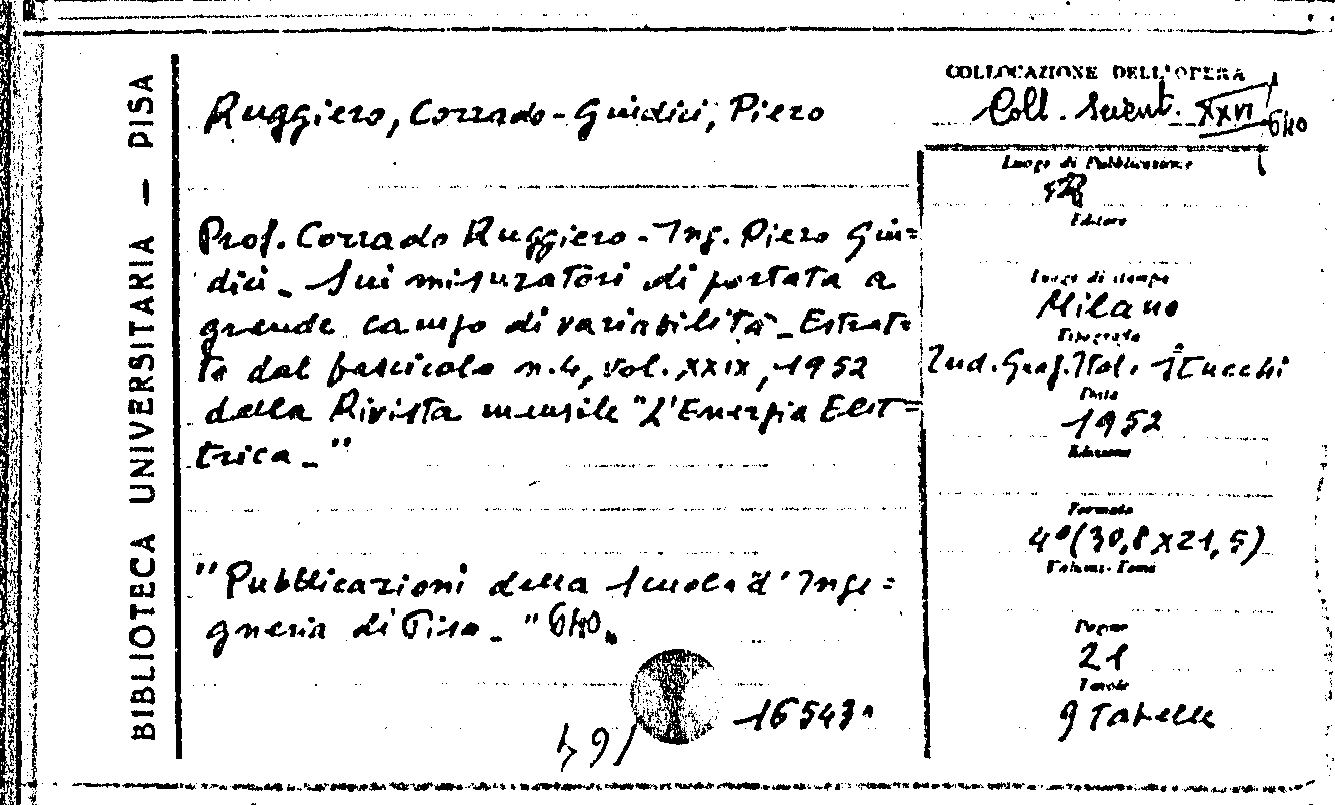 BIBLIOTECA UNIVERSITARIA — PISA
Ruggiero, Corrado - Guidici, Piero
Prof. Corrado Ruggiero - Ing. Piero Giu=
dici - Sui misuratori di portata a
grande campo di variabilità - Estrat=
to dal fascicolo n. 4, vol. XXIX, 1952
della Rivista mensile "L'Energia Elet=
trica - "
"Pubblicazioni della Scuola d'Inge=
gneria di Pisa - "
16543
COLLOCAZIONE DELL'OPERA
Coll. Scient. XXVI
Luogo di Pubblicazione
Editore
Luogo di stampa
Milano
Tipografia
Ind. Graf. Ital. Stucchi
Data
1952
Edizione
Formato
4° (30,8 x 21,5)
Volumi - Tomi
Pagine
21
Tavole
9 Tabelle